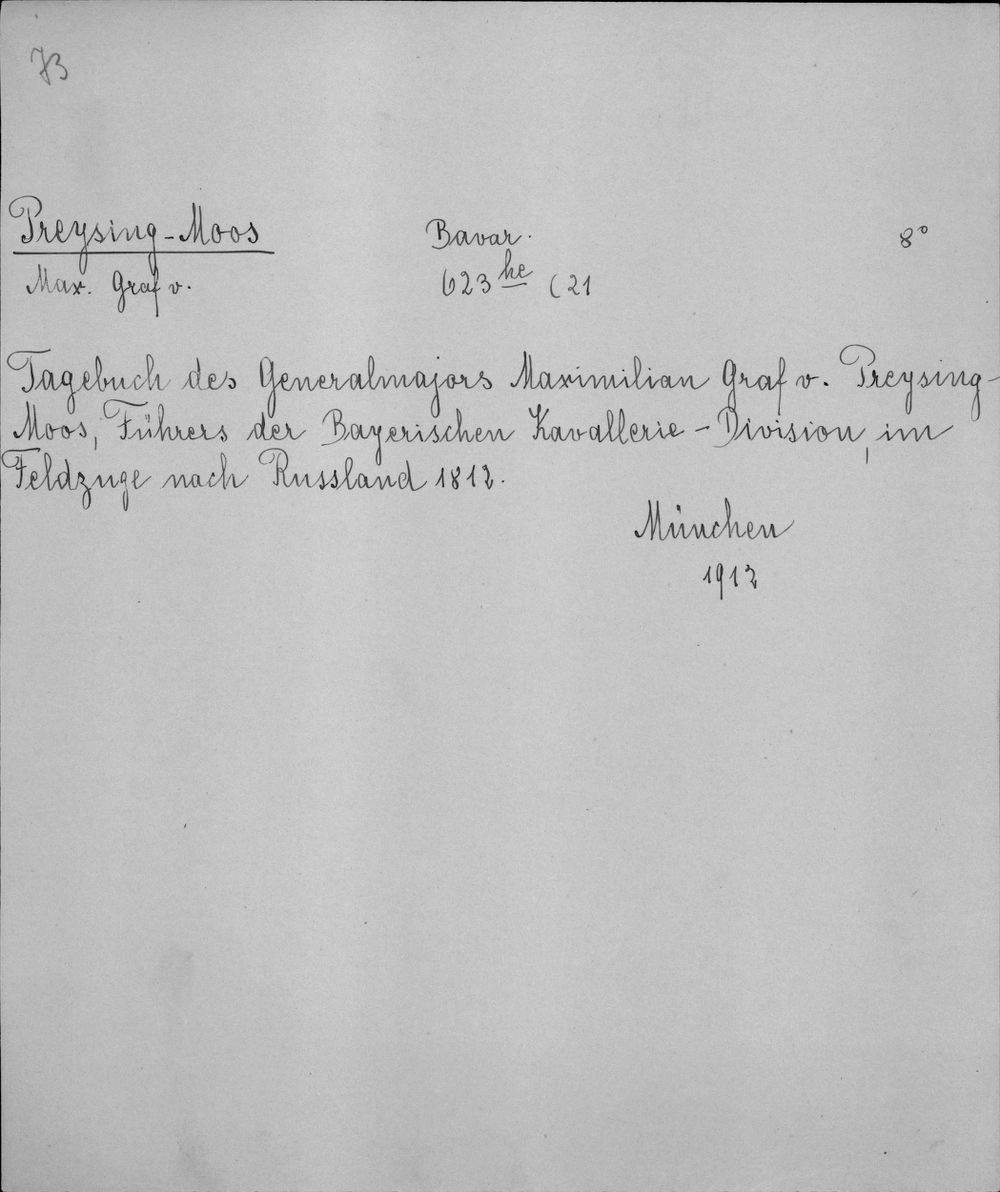 73
Preysing-Moos Bavar. 8°
Max. Graf v. 623 he (21
Tagebuch des Generalmajors Maximilian Graf v. Preysing-
Moos, Führers der Bayerischen Kavallerie-Division, im
Feldzuge nach Russland 1812.
München
1912